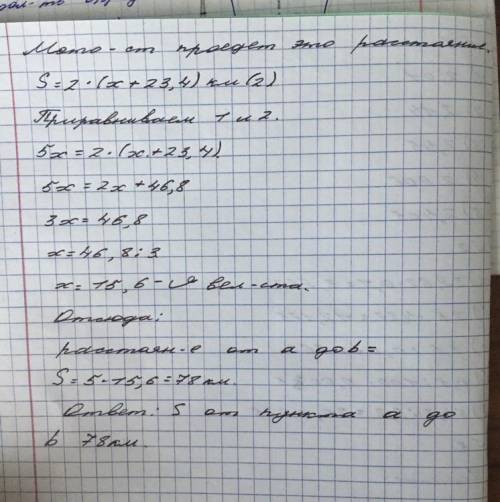 Мото-ст проедет это расстояние.
S = 2 · (x + 23,4) км (2)
Приравниваем 1 и 2.
5x = 2 · (x + 23,4)
5x = 2x + 46,8
3x = 46,8
x = 46,8 : 3
x = 15,6 - вел-ста.
Отсюда:
расстоян-е от a до b =
S = 5 · 15,6 = 78 км.
Ответ: S от пункта a до
b 78 км.